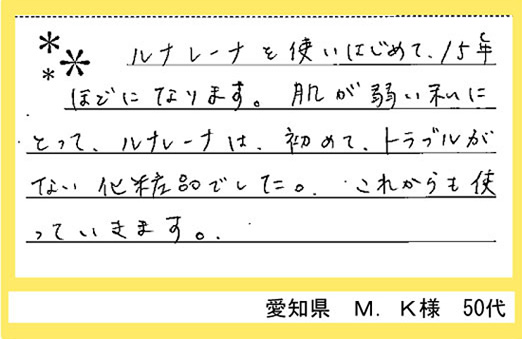 ルナレーナを使いはじめて、15年
ほどになります。肌が弱い私に
とって、ルナレーナは、初めて、トラブルが
ない化粧品でした。これからも使
っていきます。
愛知県 M.K様 50代